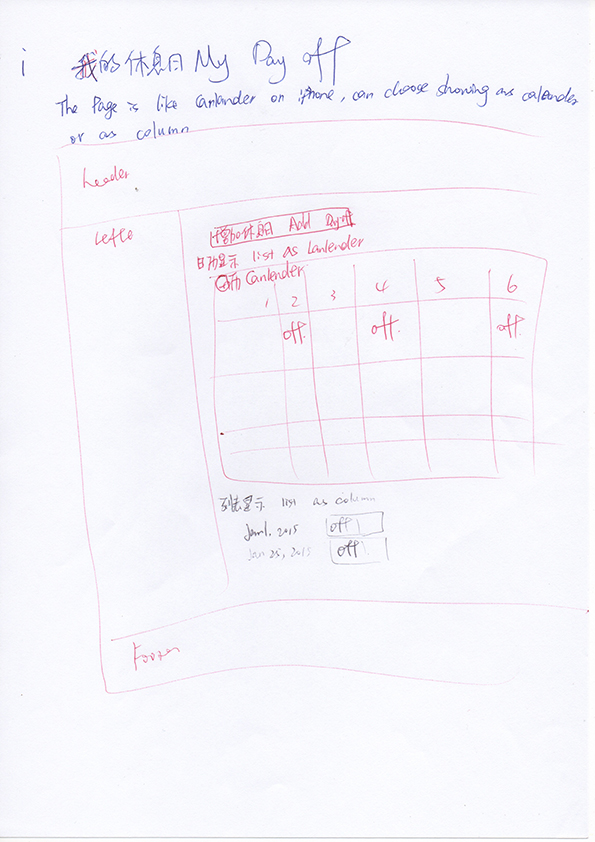 i 我的休息日 My Day off
The Page is like Canlander on iphone, can choose showing as calander
or as column
header
Lefte
增加休息日 Add Day off
日历显示 list as Canlender
Canlender
1 2 3 4 5 6
off. off. off.
列表显示 list as column
Jan1, 2015 off
Jan 25, 2015 off
Foozer